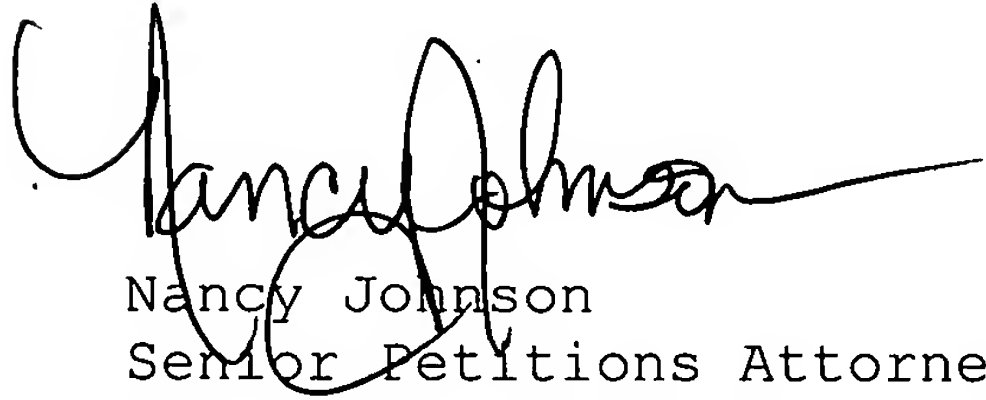 Nancy Johnson
Nancy Johnson
Senior Petitions Attorne